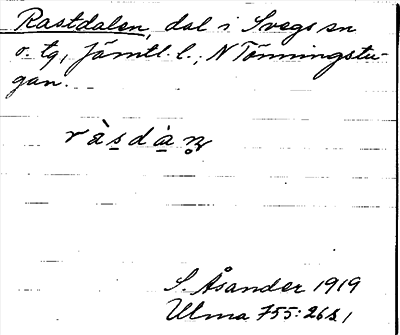 Rastdalen, dal i Svegs sn
o. tg, Jämtl. l.; N Tönningstu-
gan.
ràsdàṇ
S. Åsander 1919
Ulma 755: 26 s. 1